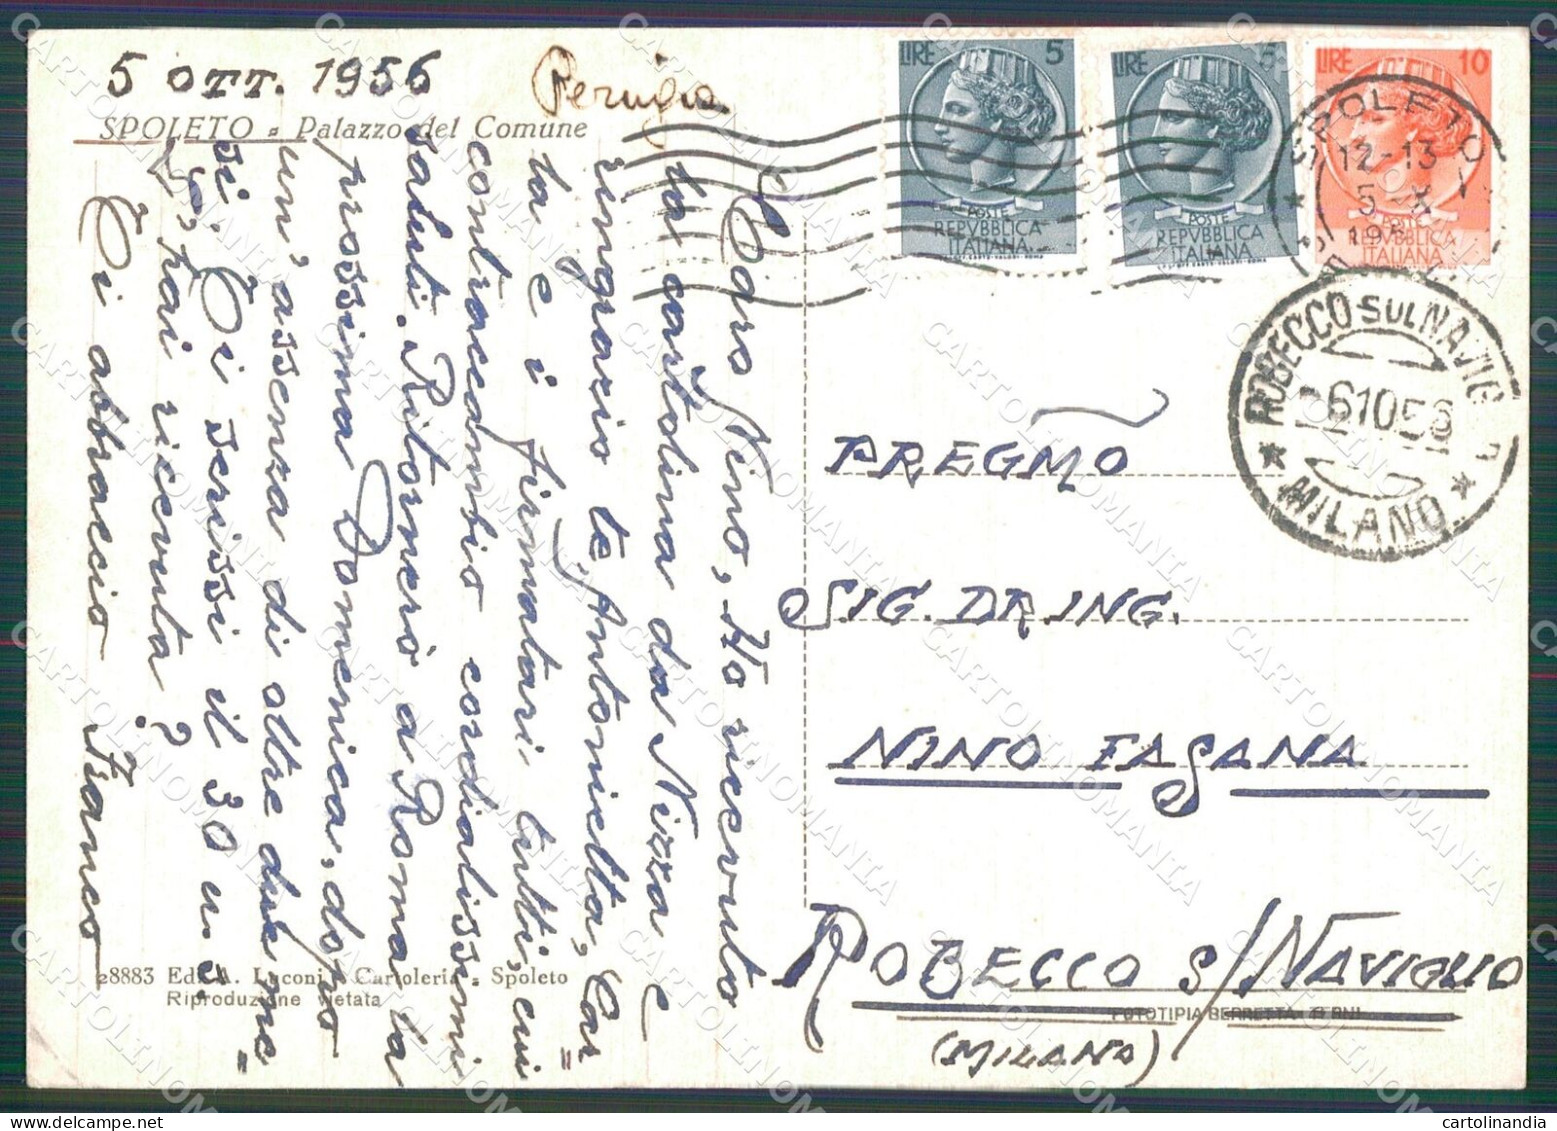 5 OTT. 1956
Perugia
SPOLETO - Palazzo del Comune
Caro Nino, Ho ricevuto
la cartolina da Nizza e
ringrazio te, Antonietta, Car=
la e i firmatari tutti, cui
contraccambio cordialissimi
saluti. Ritornerò a Roma la
prossima Domenica, dopo
un'assenza di oltre due me=
si. Ti scrissi il 30 u.s.
L'hai ricevuta?
Ti abbraccio Franco
28883 Ediz. A. Luconi - Cartoleria - Spoleto
Riproduzione vietata
LIRE 5
POSTE
REPVBBLICA
ITALIANA
LIRE 5
POSTE
REPVBBLICA
ITALIANA
LIRE 10
POSTE
REPVBBLICA
ITALIANA
SPOLETO
12-13
5 X
195
ROBECCO SUL NAVIG
6 10 56
MILANO
PREGMO
SIG. DR ING.
NINO FASANA
ROBECCO S/NAVIGLIO
(MILANO)
FOTOTIPIA BERRETTA - TERNI
CARTOLINOMANIA
cartolinandia